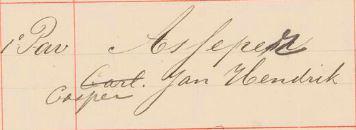 1e Pav Assepe
Carl. Jan Hendrik
Casper